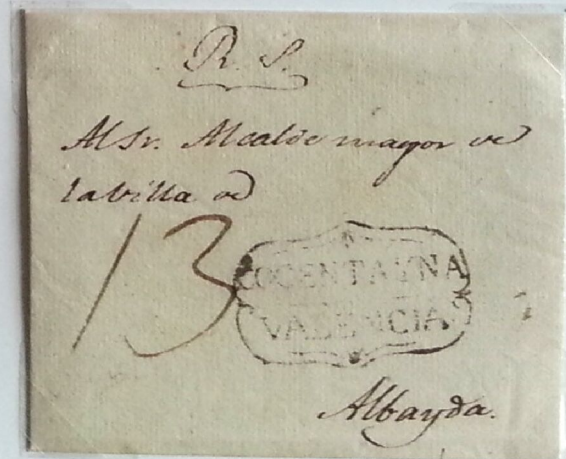 R. S.
Al Sr. Alcalde mayor de
la villa de
13
COCENTAYNA
VALENCIA
Albayda.